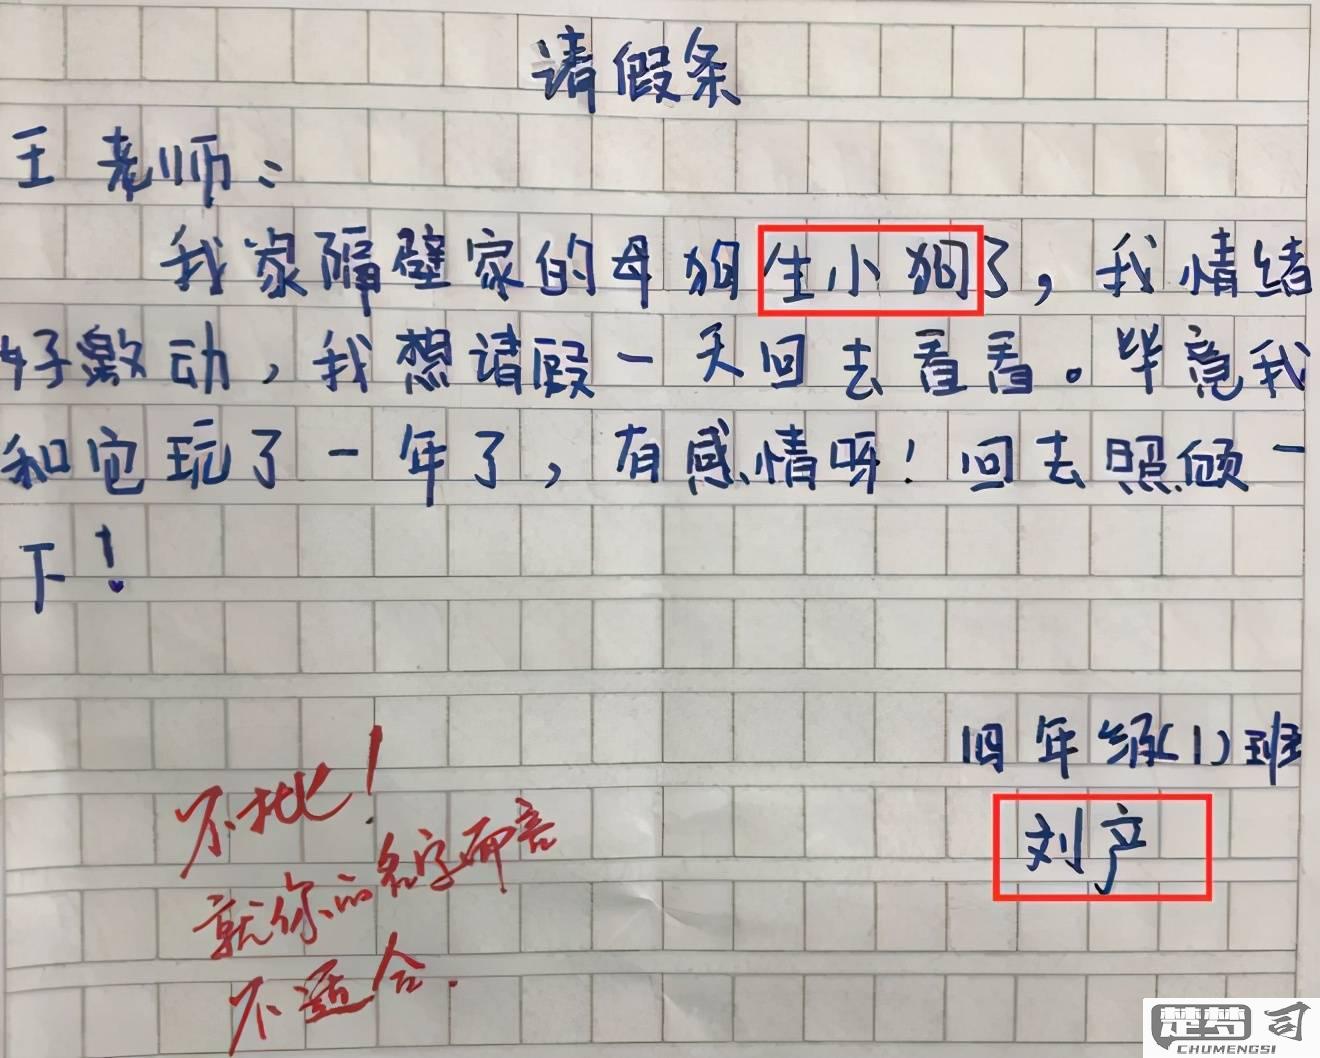 请假条
王老师：
我家隔壁家的母狗生小狗了，我情绪
好激动，我想请假一天回去看看。毕竟我
和它玩了一年了，有感情呀！回去照顾一
下！
四年级(1)班
刘产
不批！
就你的名字而言
不适合.
楚梦司
CHUMENGSI